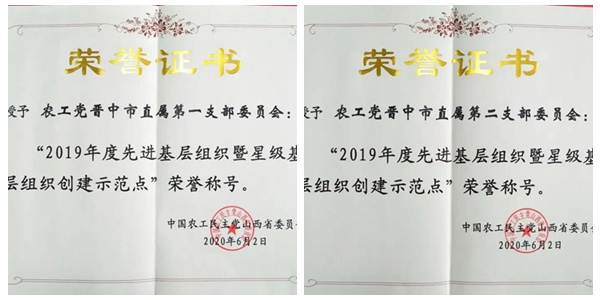 荣誉证书
授予 农工党晋中市直属第一支部委员会：
“2019年度先进基层组织暨星级基
层组织创建示范点”荣誉称号。
中国农工民主党山西省委员会
2020年6月2日
荣誉证书
授予 农工党晋中市直属第二支部委员会：
“2019年度先进基层组织暨星级基
层组织创建示范点”荣誉称号。
中国农工民主党山西省委员会
2020年6月2日